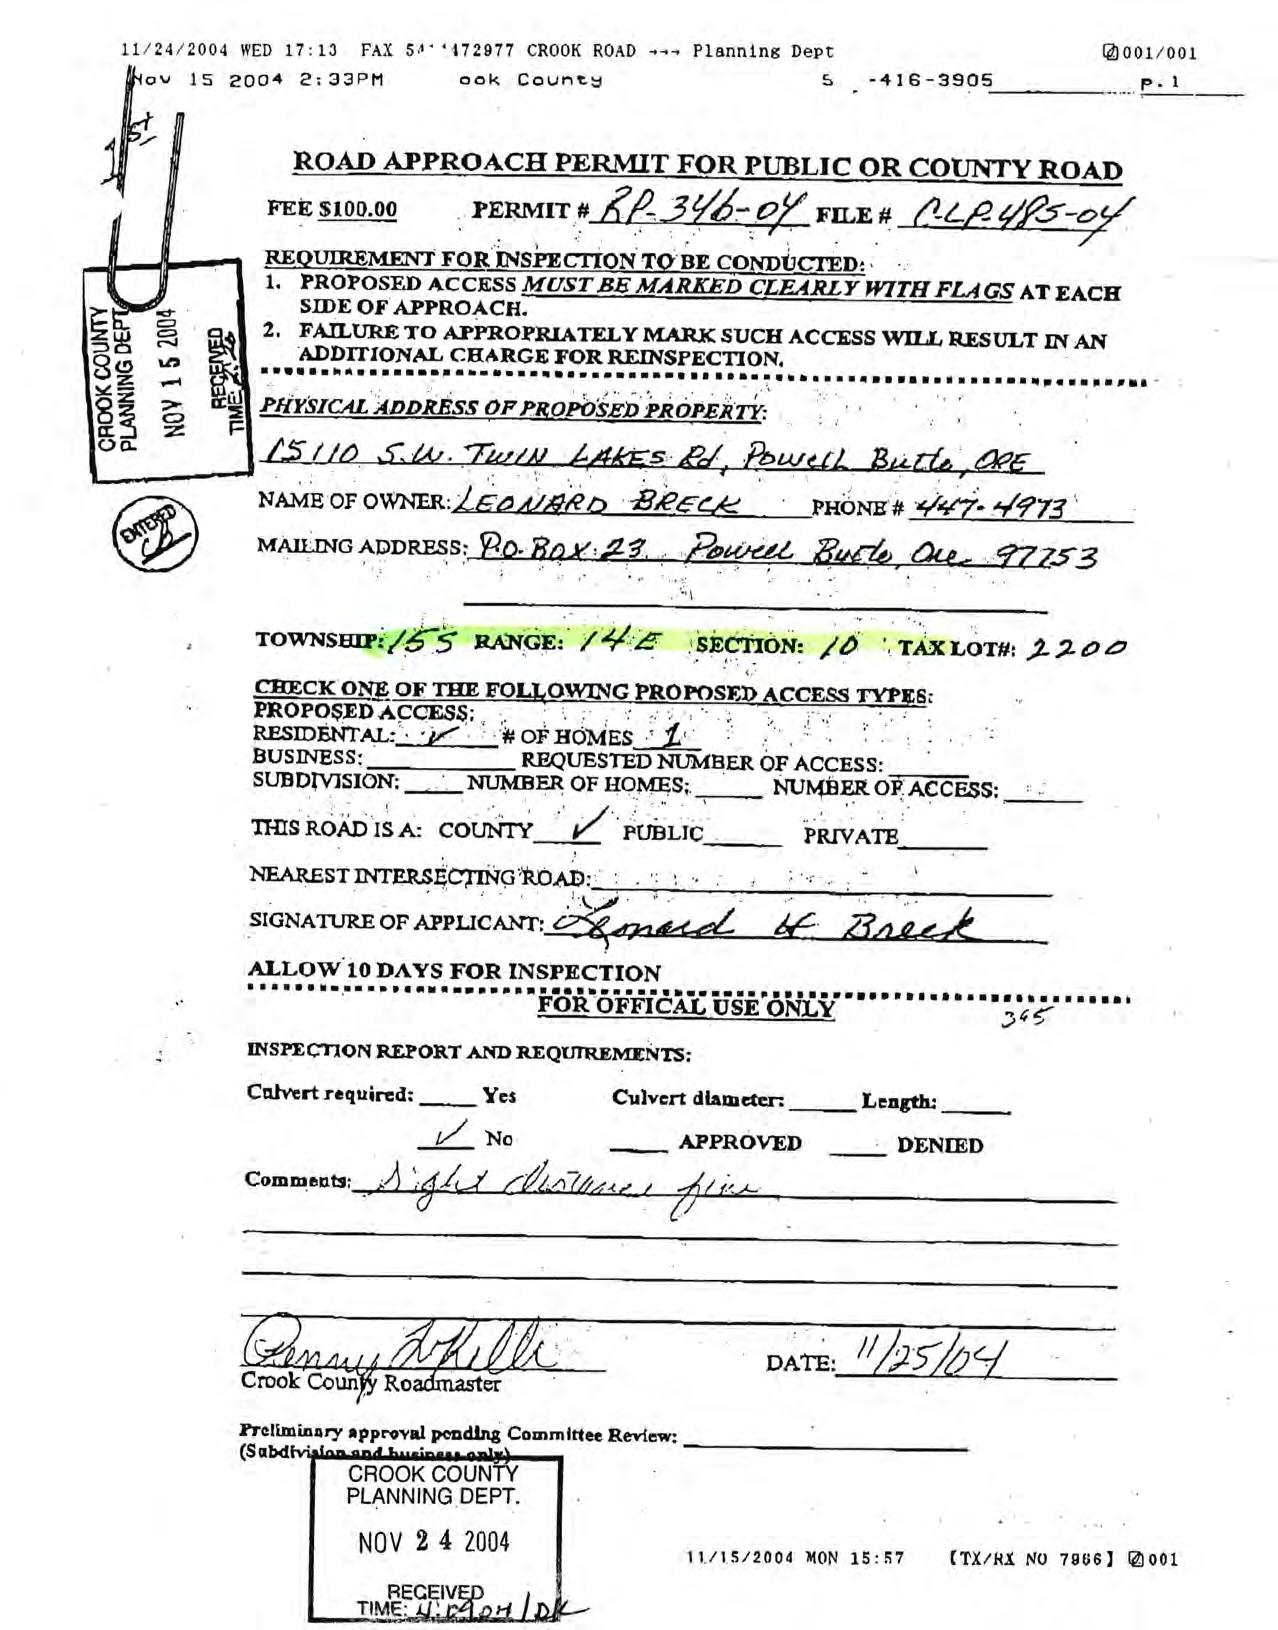 11/24/2004 WED 17:13 FAX 472977 CROOK ROAD →→→ Planning Dept 001/001
Nov 15 2004 2:33PM ook County 5 -416-3905 p.1
1st
ROAD APPROACH PERMIT FOR PUBLIC OR COUNTY ROAD
FEE $100.00 PERMIT # RP-346-04 FILE # C-LP-485-04
REQUIREMENT FOR INSPECTION TO BE CONDUCTED:
1. PROPOSED ACCESS MUST BE MARKED CLEARLY WITH FLAGS AT EACH
SIDE OF APPROACH.
2. FAILURE TO APPROPRIATELY MARK SUCH ACCESS WILL RESULT IN AN
ADDITIONAL CHARGE FOR REINSPECTION.
CROOK COUNTY
PLANNING DEPT
NOV 15 2004
RECEIVED
TIME:
PHYSICAL ADDRESS OF PROPOSED PROPERTY:
15110 S.W. TWIN LAKES Rd, Powell Butte, ORE
NAME OF OWNER: LEONARD BRECK PHONE # 447-4973
ENTERED
MAILING ADDRESS: P.O. Box 23 Powell Butte, Ore 97753
TOWNSHIP: 15S RANGE: 14E SECTION: 10 TAX LOT#: 2200
CHECK ONE OF THE FOLLOWING PROPOSED ACCESS TYPES:
PROPOSED ACCESS:
RESIDENTAL: ✓ # OF HOMES 1
BUSINESS: REQUESTED NUMBER OF ACCESS:
SUBDIVISION: NUMBER OF HOMES: NUMBER OF ACCESS:
THIS ROAD IS A: COUNTY ✓ PUBLIC PRIVATE
NEAREST INTERSECTING ROAD:
SIGNATURE OF APPLICANT: Leonard H Breck
ALLOW 10 DAYS FOR INSPECTION
FOR OFFICAL USE ONLY
345
INSPECTION REPORT AND REQUIREMENTS:
Culvert required: Yes Culvert diameter: Length:
✓ No APPROVED DENIED
Comments: Sight distance fine
Penny
DATE: 11/25/04
Crook County Roadmaster
Preliminary approval pending Committee Review:
(Subdivision and business only)
CROOK COUNTY
PLANNING DEPT.
NOV 24 2004
RECEIVED
TIME:
11/15/2004 MON 15:57 [TX/RX NO 7966] 001